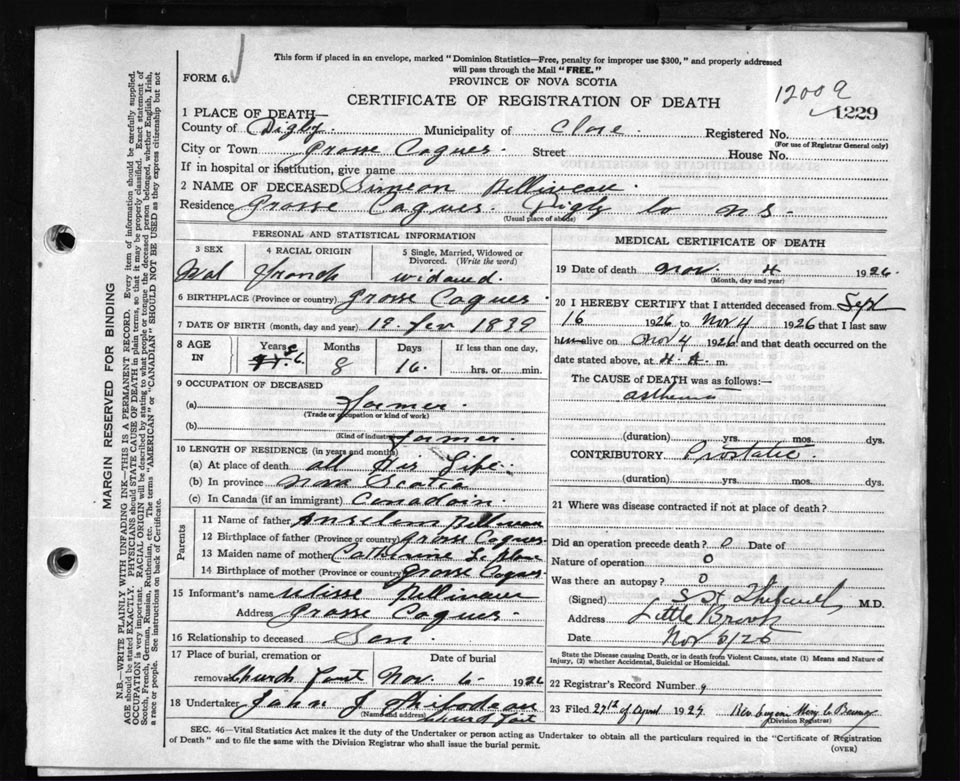 This form if placed in an envelope, marked "Dominion Statistics—Free, penalty for improper use $300," and properly addressed
will pass through the Mail "FREE."
FORM 6.
PROVINCE OF NOVA SCOTIA
CERTIFICATE OF REGISTRATION OF DEATH
12009
1229
1 PLACE OF DEATH—
County of Digby. Municipality of Clare. Registered No.
(For use of Registrar General only)
City or Town Grosse Coques. Street House No.
If in hospital or institution, give name
2 NAME OF DECEASED Simeon Belliveau.
Residence Grosse Coques. Digby Co N S.
(Usual place of abode)
PERSONAL AND STATISTICAL INFORMATION
3 SEX 4 RACIAL ORIGIN 5 Single, Married, Widowed or
Divorced. (Write the word)
Mal French widowed.
6 BIRTHPLACE (Province or country) Grosse Coques.
7 DATE OF BIRTH (month, day and year) 19 fev 1839
8 AGE Years Months Days If less than one day,
IN 8 16. hrs. or min.
9 OCCUPATION OF DECEASED
(a) farmer.
(Trade or occupation or kind of work)
(b) farmer.
(Kind of industry)
10 LENGTH OF RESIDENCE (in years and months)
(a) At place of death all His Life.
(b) In province Nova Scotia
(c) In Canada (if an immigrant) Canadain.
Parents
11 Name of father Anselm Belliveau
12 Birthplace of father (Province or country) Grosse Coques
13 Maiden name of mother Catherine Le Blanc
14 Birthplace of mother (Province or country) Grosse Coques
15 Informant's name Ulisse Belliveau
Address Grosse Coques
16 Relationship to deceased Son.
17 Place of burial, cremation or Date of burial
removal Church Point Nov 6 1926
18 Undertaker John J Thibodeau
(Name and address) Church Point
MEDICAL CERTIFICATE OF DEATH
19 Date of death Nov. 4 1926.
(Month, day and year)
20 I HEREBY CERTIFY that I attended deceased from Sept
16 1926 to Nov 4 1926 that I last saw
him alive on Nov 4 1926 and that death occurred on the
date stated above, at m.
The CAUSE of DEATH was as follows:—
(duration) yrs. mos. dys.
CONTRIBUTORY Prostatic.
(duration) yrs. mos. dys.
21 Where was disease contracted if not at place of death?
Did an operation precede death? 0 Date of
Nature of operation 0
Was there an autopsy? 0
(Signed) M.D.
Address Little Brook
Date Nov
State the Disease causing Death, or in death from Violent Causes, state (1) Means and Nature of
Injury, (2) whether Accidental, Suicidal or Homicidal.
22 Registrar's Record Number 9
23 Filed 27th of April 1927
(Division Registrar)
SEC. 46—Vital Statistics Act makes it the duty of the Undertaker or person acting as Undertaker to obtain all the particulars required in the "Certificate of Registration
of Death" and to file the same with the Division Registrar who shall issue the burial permit.
(OVER)
MARGIN RESERVED FOR BINDING
N.B.—WRITE PLAINLY WITH UNFADING INK—THIS IS A PERMANENT RECORD. Every item of information should be carefully supplied.
AGE should be stated EXACTLY. PHYSICIANS should STATE CAUSE OF DEATH in plain terms, so that it may be properly classified. Exact statement of
OCCUPATION is very important. RACIAL ORIGIN will be described by stating to what people or tongue the deceased person belonged, whether English, Irish,
Scotch, French, German, Russian, Ruthenian, etc. The terms "AMERICAN" or "CANADIAN" SHOULD NOT BE USED as they express citizenship but not
a race or people. See instructions on back of Certificate.